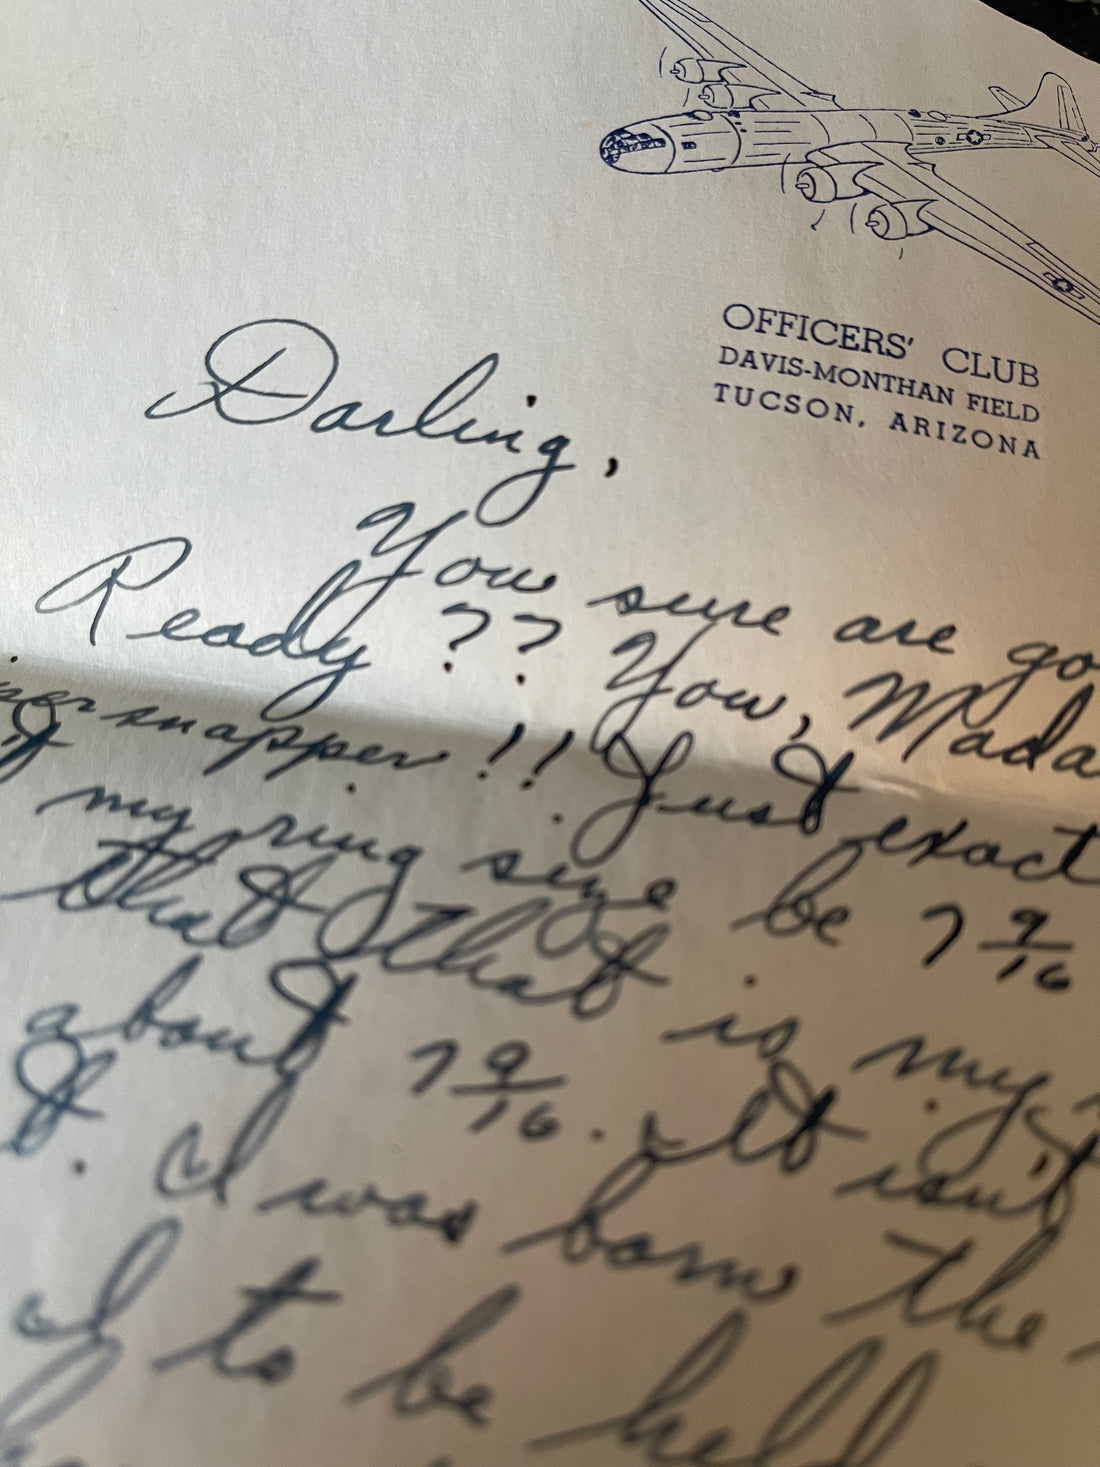 OFFICERS' CLUB
DAVIS-MONTHAN FIELD
TUCSON, ARIZONA
Darling,
You sure are go
Ready ?? You, Mada
per snapper!! Just exact
my ring size be 7 9/16
that that is my
about 7 9/16. It isn't
t. I was born the
I to be held